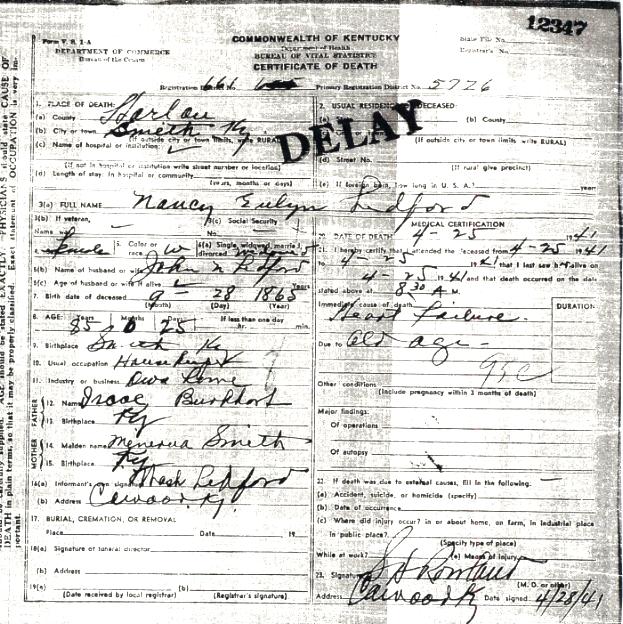 12347
Form V. S. 1-A
DEPARTMENT OF COMMERCE
Bureau of the Census
COMMONWEALTH OF KENTUCKY
Department of Health
BUREAU OF VITAL STATISTICS
CERTIFICATE OF DEATH
State File No.
Registrar's No.
Registration District No. 661 Primary Registration District No. 5776
DELAY
1. PLACE OF DEATH:
(a) County Harlan
(b) City or town Smith Ky.
(If outside city or town limits, write RURAL)
(c) Name of hospital or institution:
(If not in hospital or institution write street number or location)
(d) Length of stay: In hospital or community
(years, months or days)
2. USUAL RESIDENCE OF DECEASED:
(b) County
(If outside city or town limits, write RURAL)
(d) Street No.
(If rural give precinct)
(e) If foreign born, how long in U. S. A.? years
3(a) FULL NAME Nancy Evlyn Ledford
3(b) If veteran,
Name war
3(c) Social Security
No.
4. Female 5. Color or race W 6(a) Single, widowed, married, divorced
6(b) Name of husband or wife John N Ledford
6(c) Age of husband or wife if alive
7. Birth date of deceased 28 1865
(Month) (Day) (Year)
8. AGE: Years Months Days If less than one day
85 0 25 hr. min.
9. Birthplace Smith Ky
10. Usual occupation
11. Industry or business Own Home
FATHER
12. Name Isaac Burkhart
13. Birthplace Ky
MOTHER
14. Maiden name Minerva Smith
15. Birthplace Ky
16(a) Informant's own signature Ledford
(b) Address Cawood, Ky.
17. BURIAL, CREMATION, OR REMOVAL
Place Date 19
18(a) Signature of funeral director
(b) Address
19(a) (b)
(Date received by local registrar) (Registrar's signature)
MEDICAL CERTIFICATION
20. DATE OF DEATH 4-25 1941
21. I hereby certify that I attended the deceased from 4-25 1941
4-25 1941 that I last saw h alive on
4-25 1941 and that death occurred on the date
stated above at 8 30 A M.
Immediate cause of death
Heart Failure
DURATION
Due to Old age
95c
Other conditions
(Include pregnancy within 3 months of death)
Major findings:
Of operations
Of autopsy
22. If death was due to external causes, fill in the following:
(a) Accident, suicide, or homicide (specify)
(b) Date of occurrence
(c) Where did injury occur? in or about home, on farm, in industrial place
in public place?
(Specify type of place)
While at work? (e) Means of injury
23. Signature
(M. D. or other)
Address Cawood Ky Date signed 4/28/41